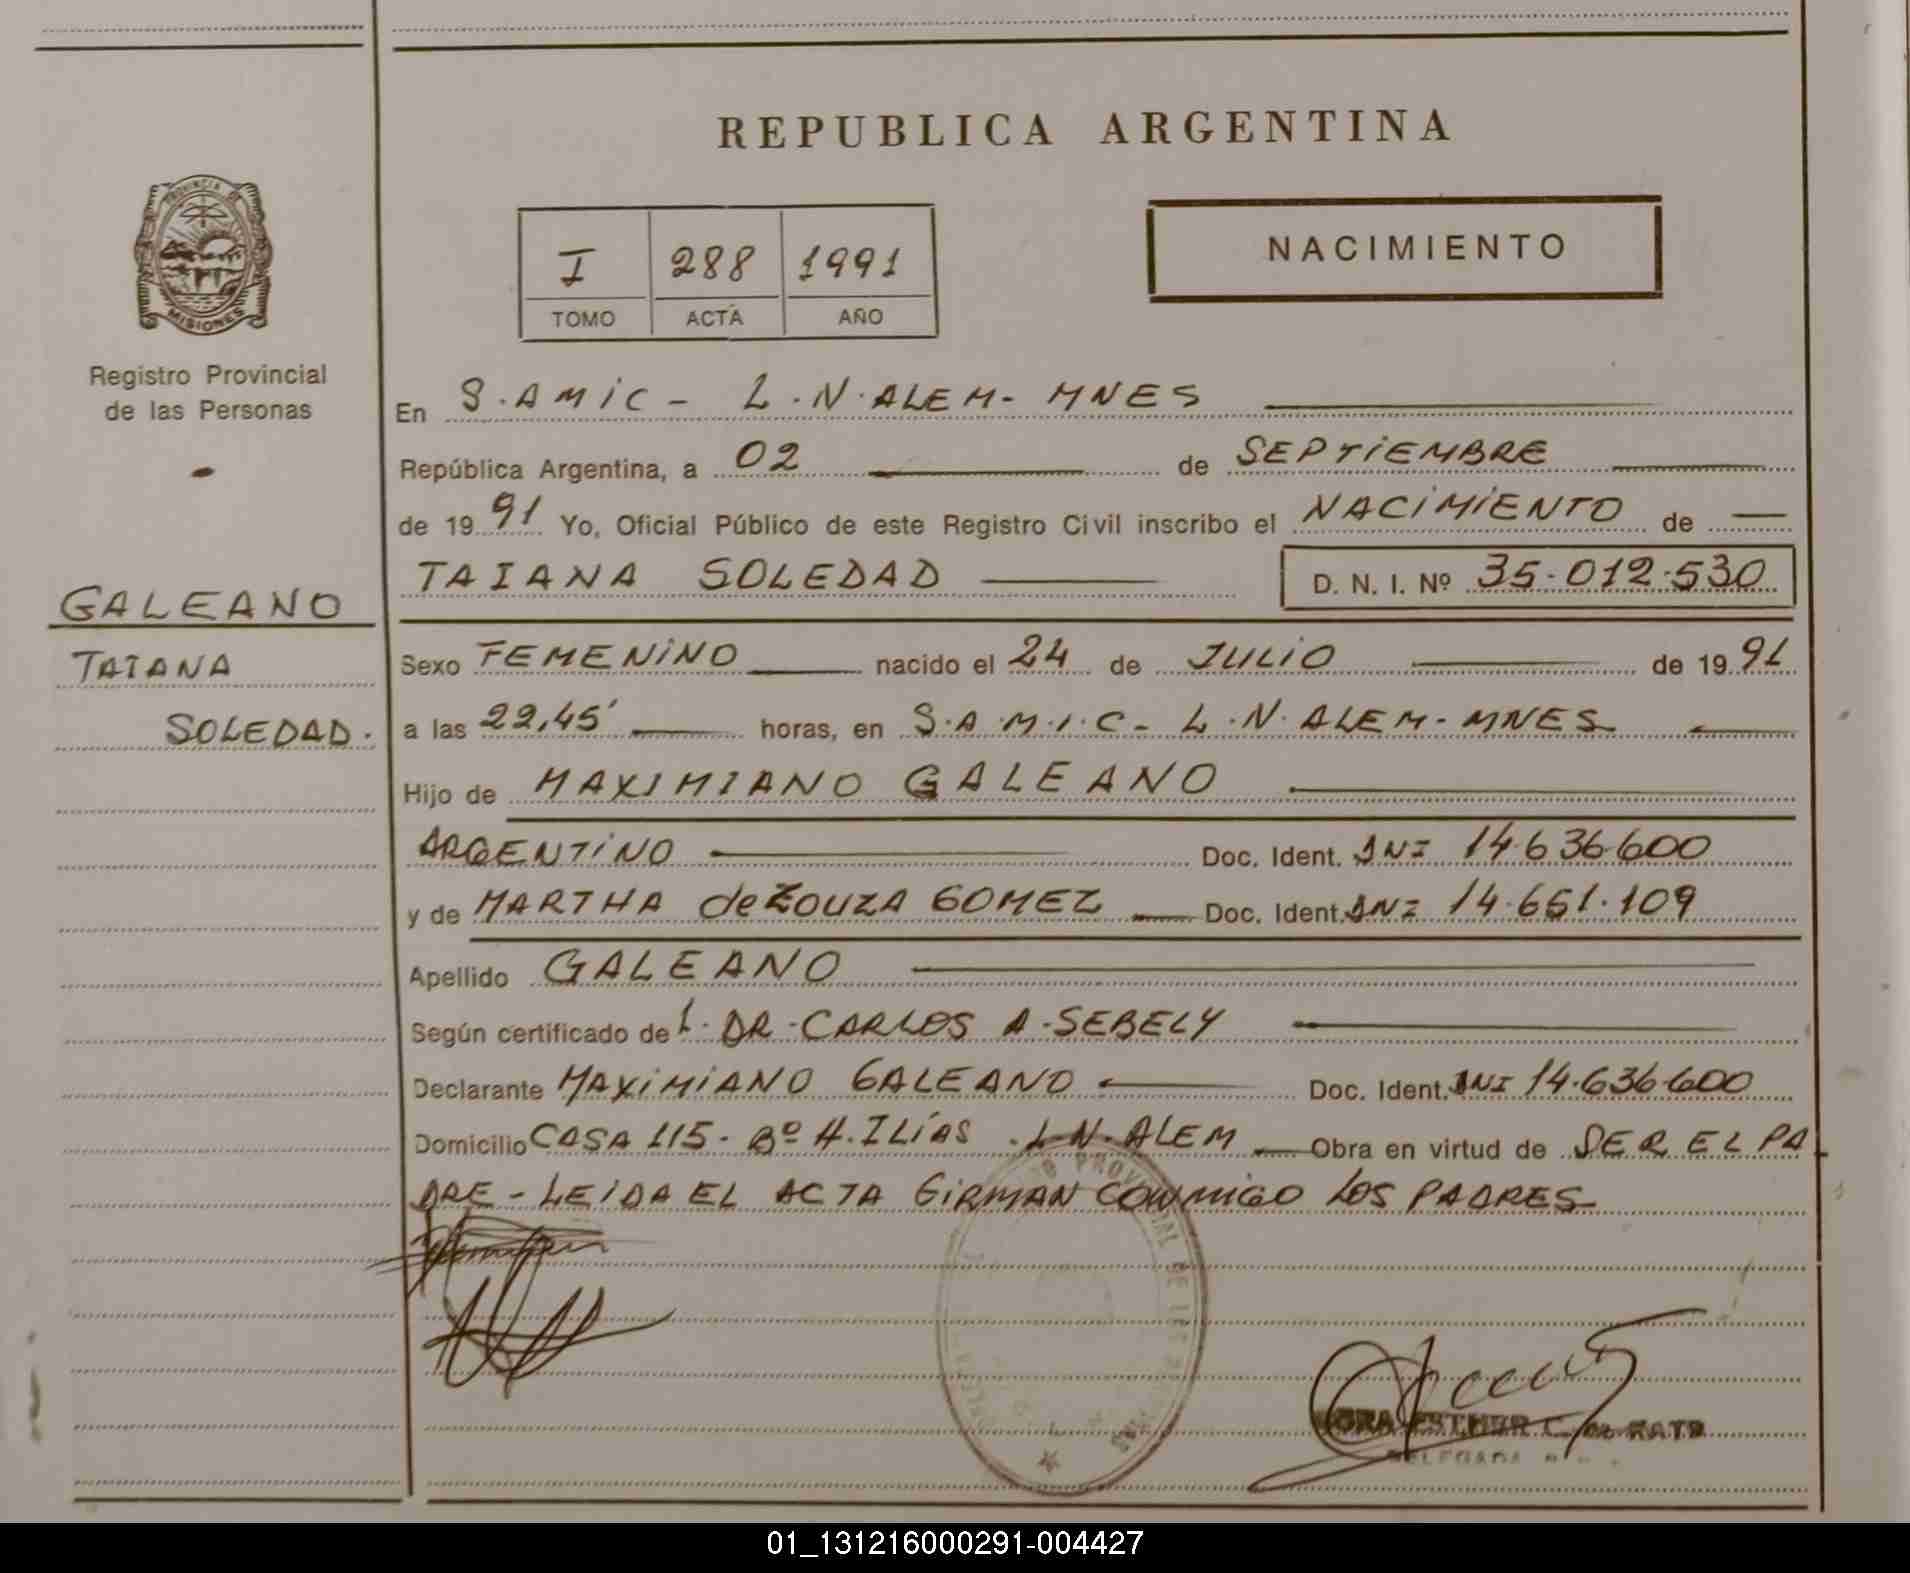 REPUBLICA ARGENTINA
PROVINCIA DE
MISIONES
I 288 1991
TOMO ACTA AÑO
NACIMIENTO
Registro Provincial
de las Personas
GALEANO
TAIANA
SOLEDAD.
En S.AMIC - L.N.ALEM - MNES
República Argentina, a 02 de SEPTIEMBRE
de 1991 Yo, Oficial Público de este Registro Civil inscribo el NACIMIENTO de
TAIANA SOLEDAD D. N. I. Nº 35.012.530
Sexo FEMENINO nacido el 24 de JULIO de 1991
a las 22,45' horas, en S.A.M.I.C - L.N.ALEM - MNES
Hijo de MAXIMIANO GALEANO
ARGENTINO Doc. Ident. DNI 14.636.600
y de MARTHA de ZOUZA GOMEZ Doc. Ident. DNI 14.651.109
Apellido GALEANO
Según certificado de L. DR. CARLOS A. SEBELY
Declarante MAXIMIANO GALEANO Doc. Ident. DNI 14.636.600
Domicilio CASA 115 - Bº H. ILÍAS . L.N. ALEM Obra en virtud de SER EL PA
DRE - LEIDA EL ACTA GIRMAN CONMIGO LOS PADRES
PROVINCIAL DE LAS
ESTHER C. de
DELEGADA
01_131216000291-004427